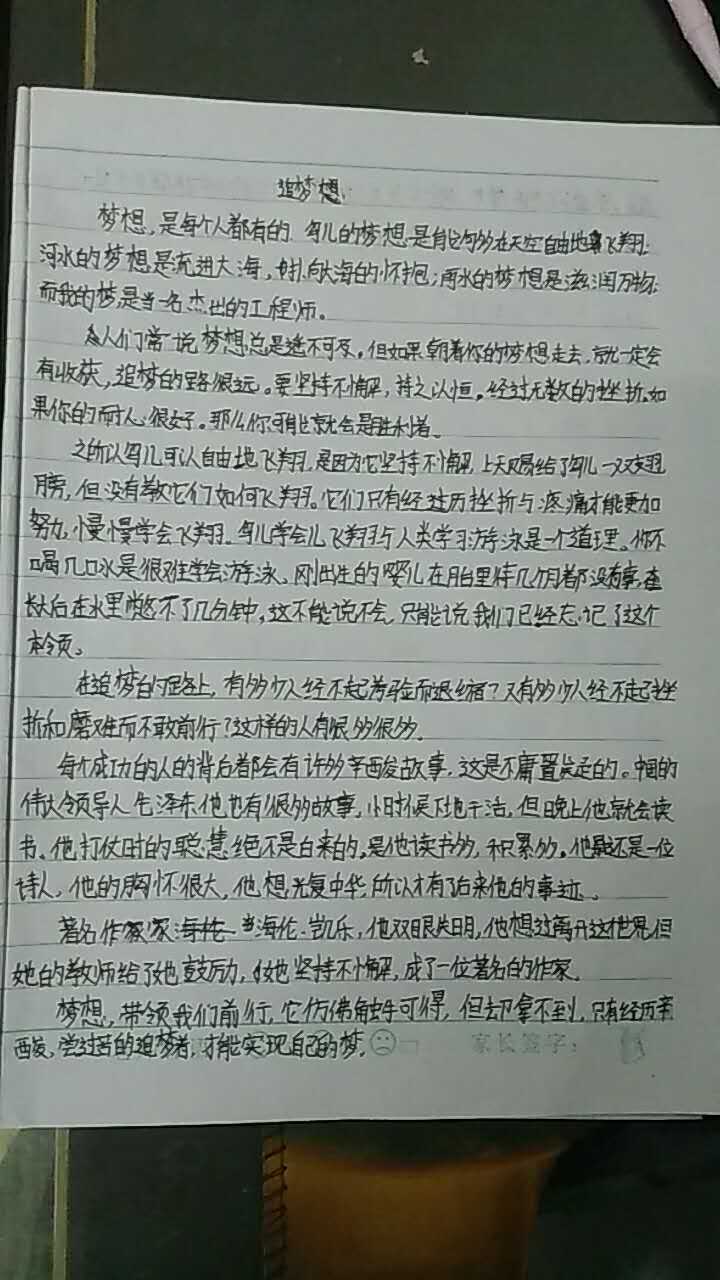 追梦想
梦想,是每个人都有的,鸟儿的梦想是能够在天空自由地飞翔;
河水的梦想是流进大海,扑向大海的怀抱;雨水的梦想是滋润万物;
而我的梦是当一名杰出的工程师。
人们常说梦想总是遥不可及,但如果朝着你的梦想走去,就一定会
有收获,追梦的路很远。要坚持不懈,持之以恒。经过无数的挫折,如
果你的耐心很好。那么你可能就会是胜利者。
之所以鸟儿可以自由地飞翔,是因为它坚持不懈,上天赐给了鸟儿一双翅
膀,但没有教它们如何飞翔。它们只有经过历挫折与疼痛才能更加
努力,慢慢学会飞翔。鸟儿学会儿飞翔与人类学习游泳是一个道理。你不
喝几口水是很难学会游泳。刚出生的婴儿在胎里待几个月都没有事,
长大后在水里憋不了几分钟,这不能说不会,只能说我们已经忘记了这个
本领。
在追梦的路上,有多少人经不起考验而退缩?又有多少人经不起挫
折和磨难而不敢前行?这样的人有很多很多。
每个成功的人的背后都会有许多辛酸故事,这是不庸置疑的。中国的
伟大领导人毛泽东他也有很多故事,小时候下地干活,但晚上他就会读
书。他打仗时的聪慧绝不是白来的,是他读书多,积累多。他还是一位
诗人,他的胸怀很大,他想光复中华,所以才有了后来他的事迹。
著名作家海伦·凯乐,他双眼失明,他想过离开这世界,但
她的教师给了她鼓励,她坚持不懈,成了一位著名的作家。
梦想,带领我们前行,它仿佛触手可得,但却拿不到,只有经历辛
酸,尝过苦的追梦者,才能实现自己的梦。
家长签字: